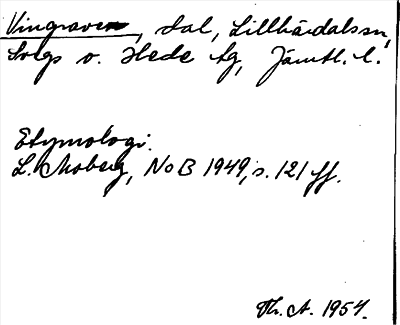 Vingraven, dal, Lillhärdals sn,
Svegs o. Hede tg, Jämtl. l.
Etymologi.
L. Moberg, NoB 1949, s. 121 ff.
Th. A. 1954.